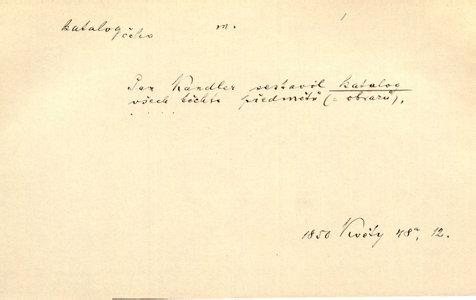 katalog m.
Pan Kandler sestavil katalog
všech těchto předmětů (= obrazů).
. . . . .
1850 Květy 48a, 12.